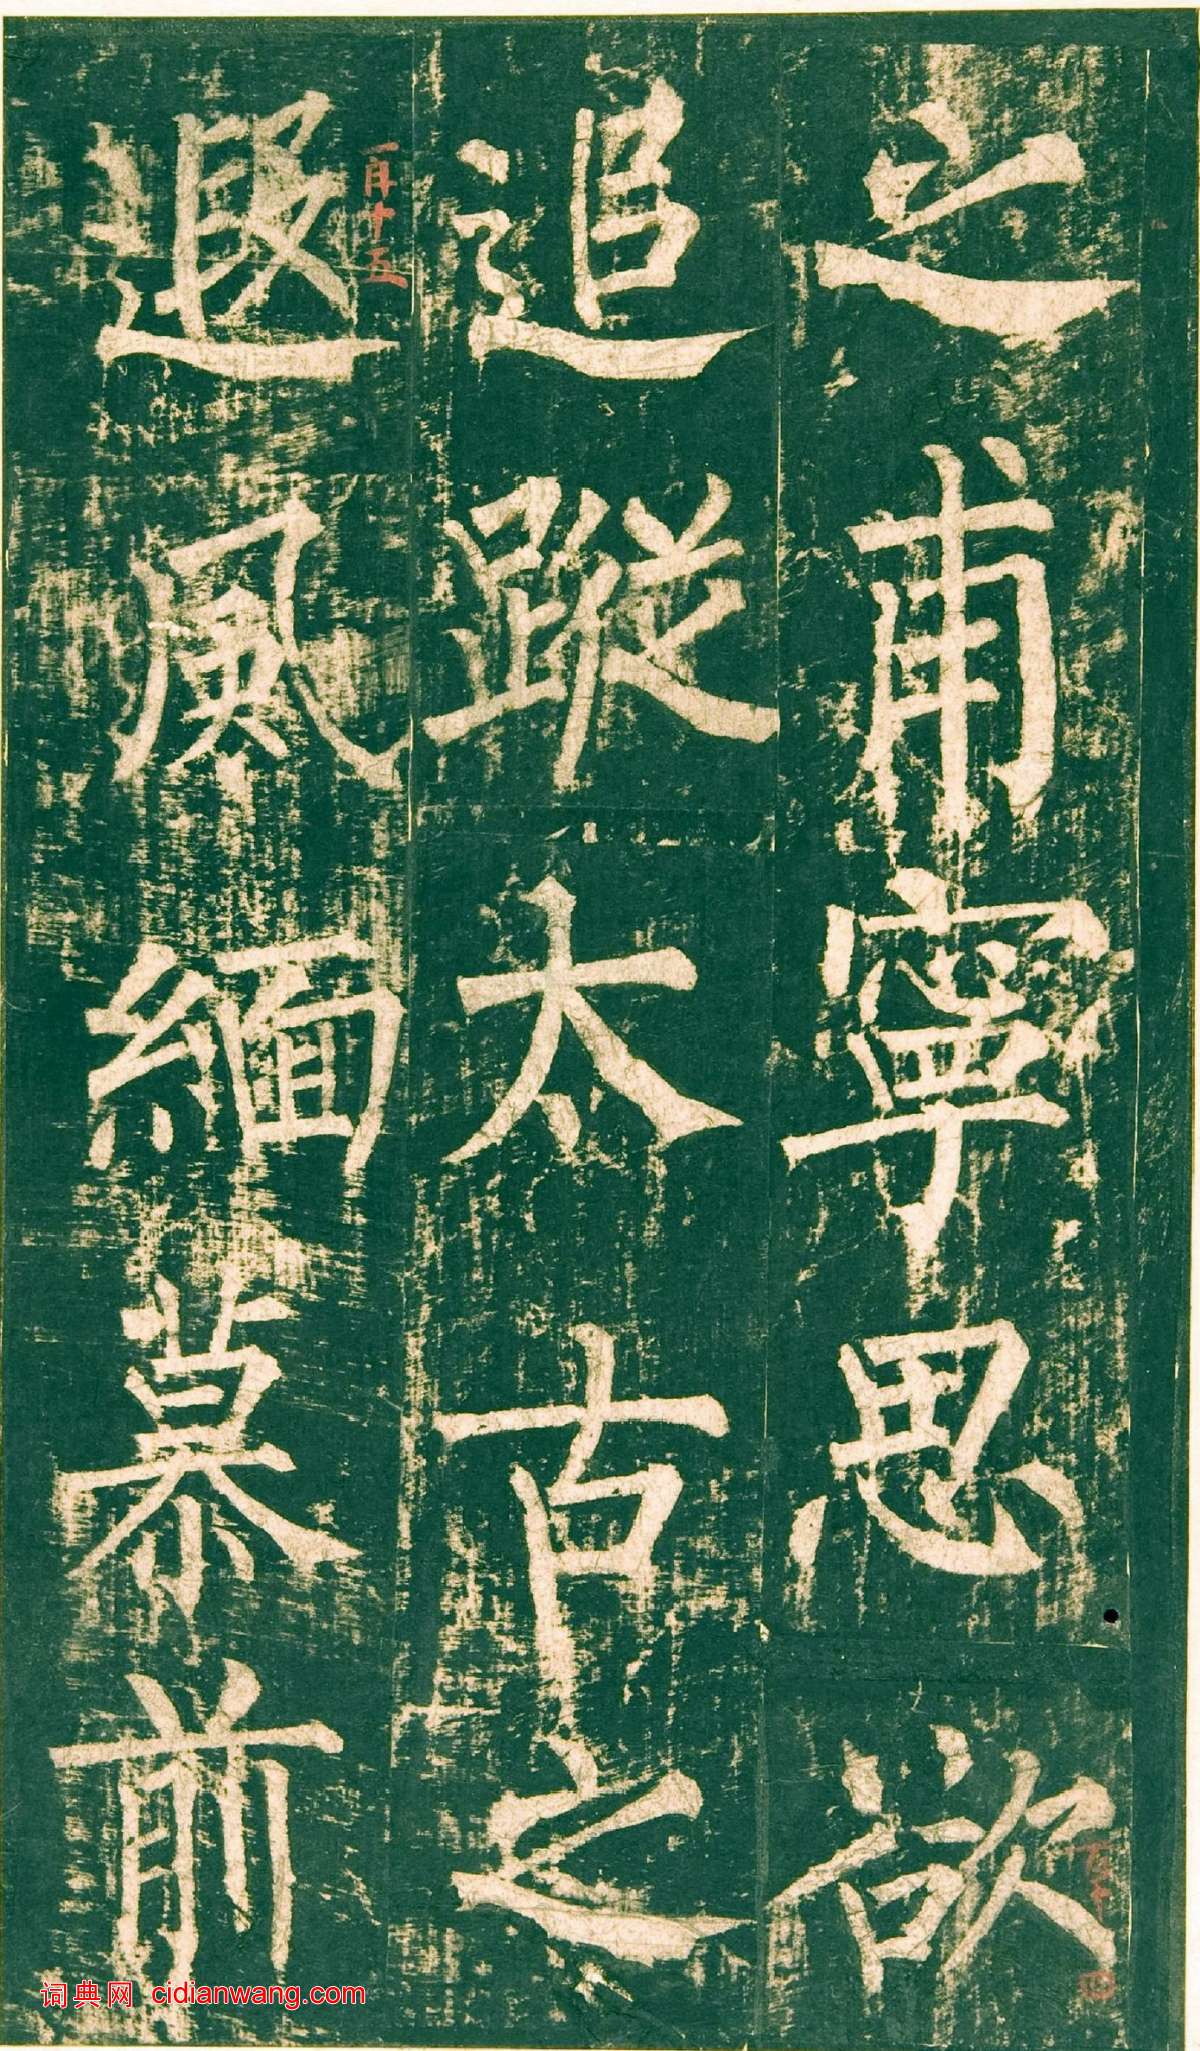 之甫寧思欲
追蹤太古之
遐風緬慕前
百十五
词典网 cidianwang.com